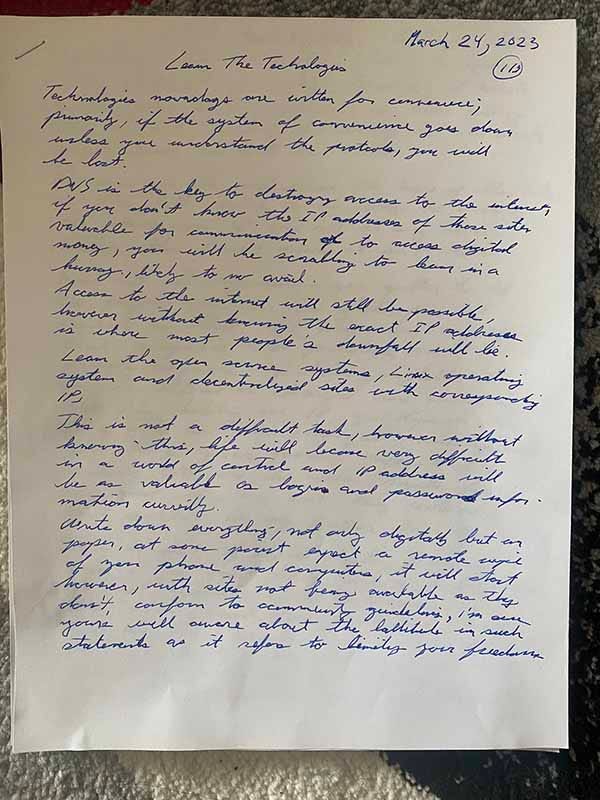 March 24, 2023
1D
Learn The Technologies
Technologies nowadays are written for convenience;
primarily, if the system of convenience goes down
unless you understand the protocols, you will
be lost.
DNS is the key to destroying access to the internet,
if you don't know the IP addresses of those sites
valuable for communication or to access digital
money, you will be scrabling to learn in a
hurray, likely to no avail.
Access to the internet will still be possible,
however without knowing the exact IP addresses
is where most people's downfall will be.
Learn the open source systems, Linux operating
system and decentralized sites with corresponding
IP.
This is not a difficult task, however without
knowing this, life will become very difficult
in a world of control and IP address will
be as valuable as login and password infor-
mation currently.
Write down everything, not only digitally but on
paper, at some point expect a remote wipe
of your phone and computers, it will start
however, with sites not being available as they
don't, conform to community guidelines, I'm sure
youre will aware about the in such
statements as it refers to limiting your freedoms